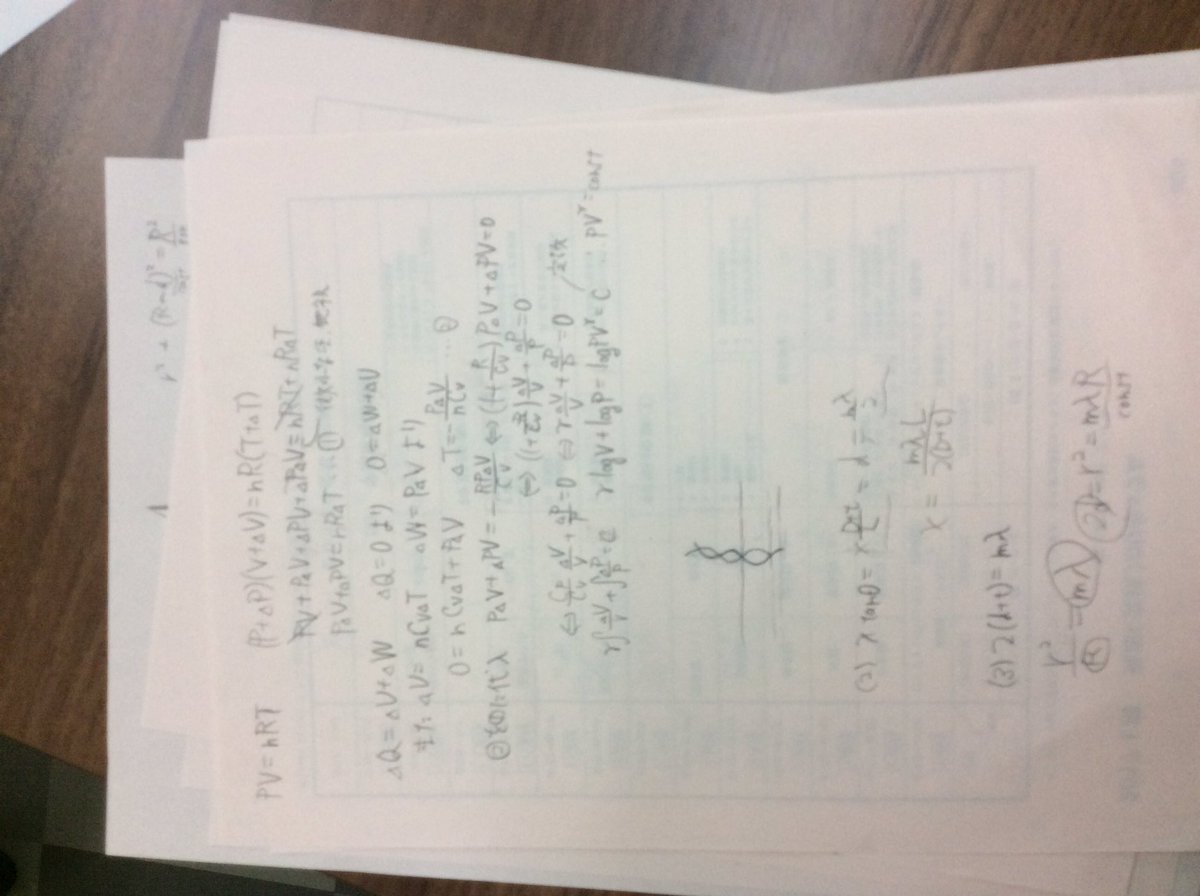 r² + (R-d)² = R²
PV = nRT (P+ΔP)(V+ΔV) = nR(T+ΔT)
PV + PΔV + ΔPV + ΔPΔV = nRT + nRΔT
PΔV + ΔPV = nRΔT … ①
ΔQ = ΔU + ΔW ΔQ = 0 より 0 = ΔW + ΔU
また ΔU = nCvΔT ΔW = PΔV より
0 = nCvΔT + PΔV ΔT = -PΔV/nCv … ②
②を①に代入 PΔV + ΔPV = -RPΔV/Cv ⇔ (1 + R/Cv)PΔV + ΔPV = 0
⇔ (1 + R/Cv)ΔV/V + ΔP/P = 0
⇔ Cp/Cv ΔV/V + ΔP/P = 0 ⇔ γΔV/V + ΔP/P = 0
γ∫ΔV/V + ∫ΔP/P = C γlogV + logP = logPV^γ = C PV^γ = const
(2) x tanθ = x D/L = d = mλ/2
x = mλL/2
(3) 2(d+t) = mλ
r²/R = mλ r² = mλR
const